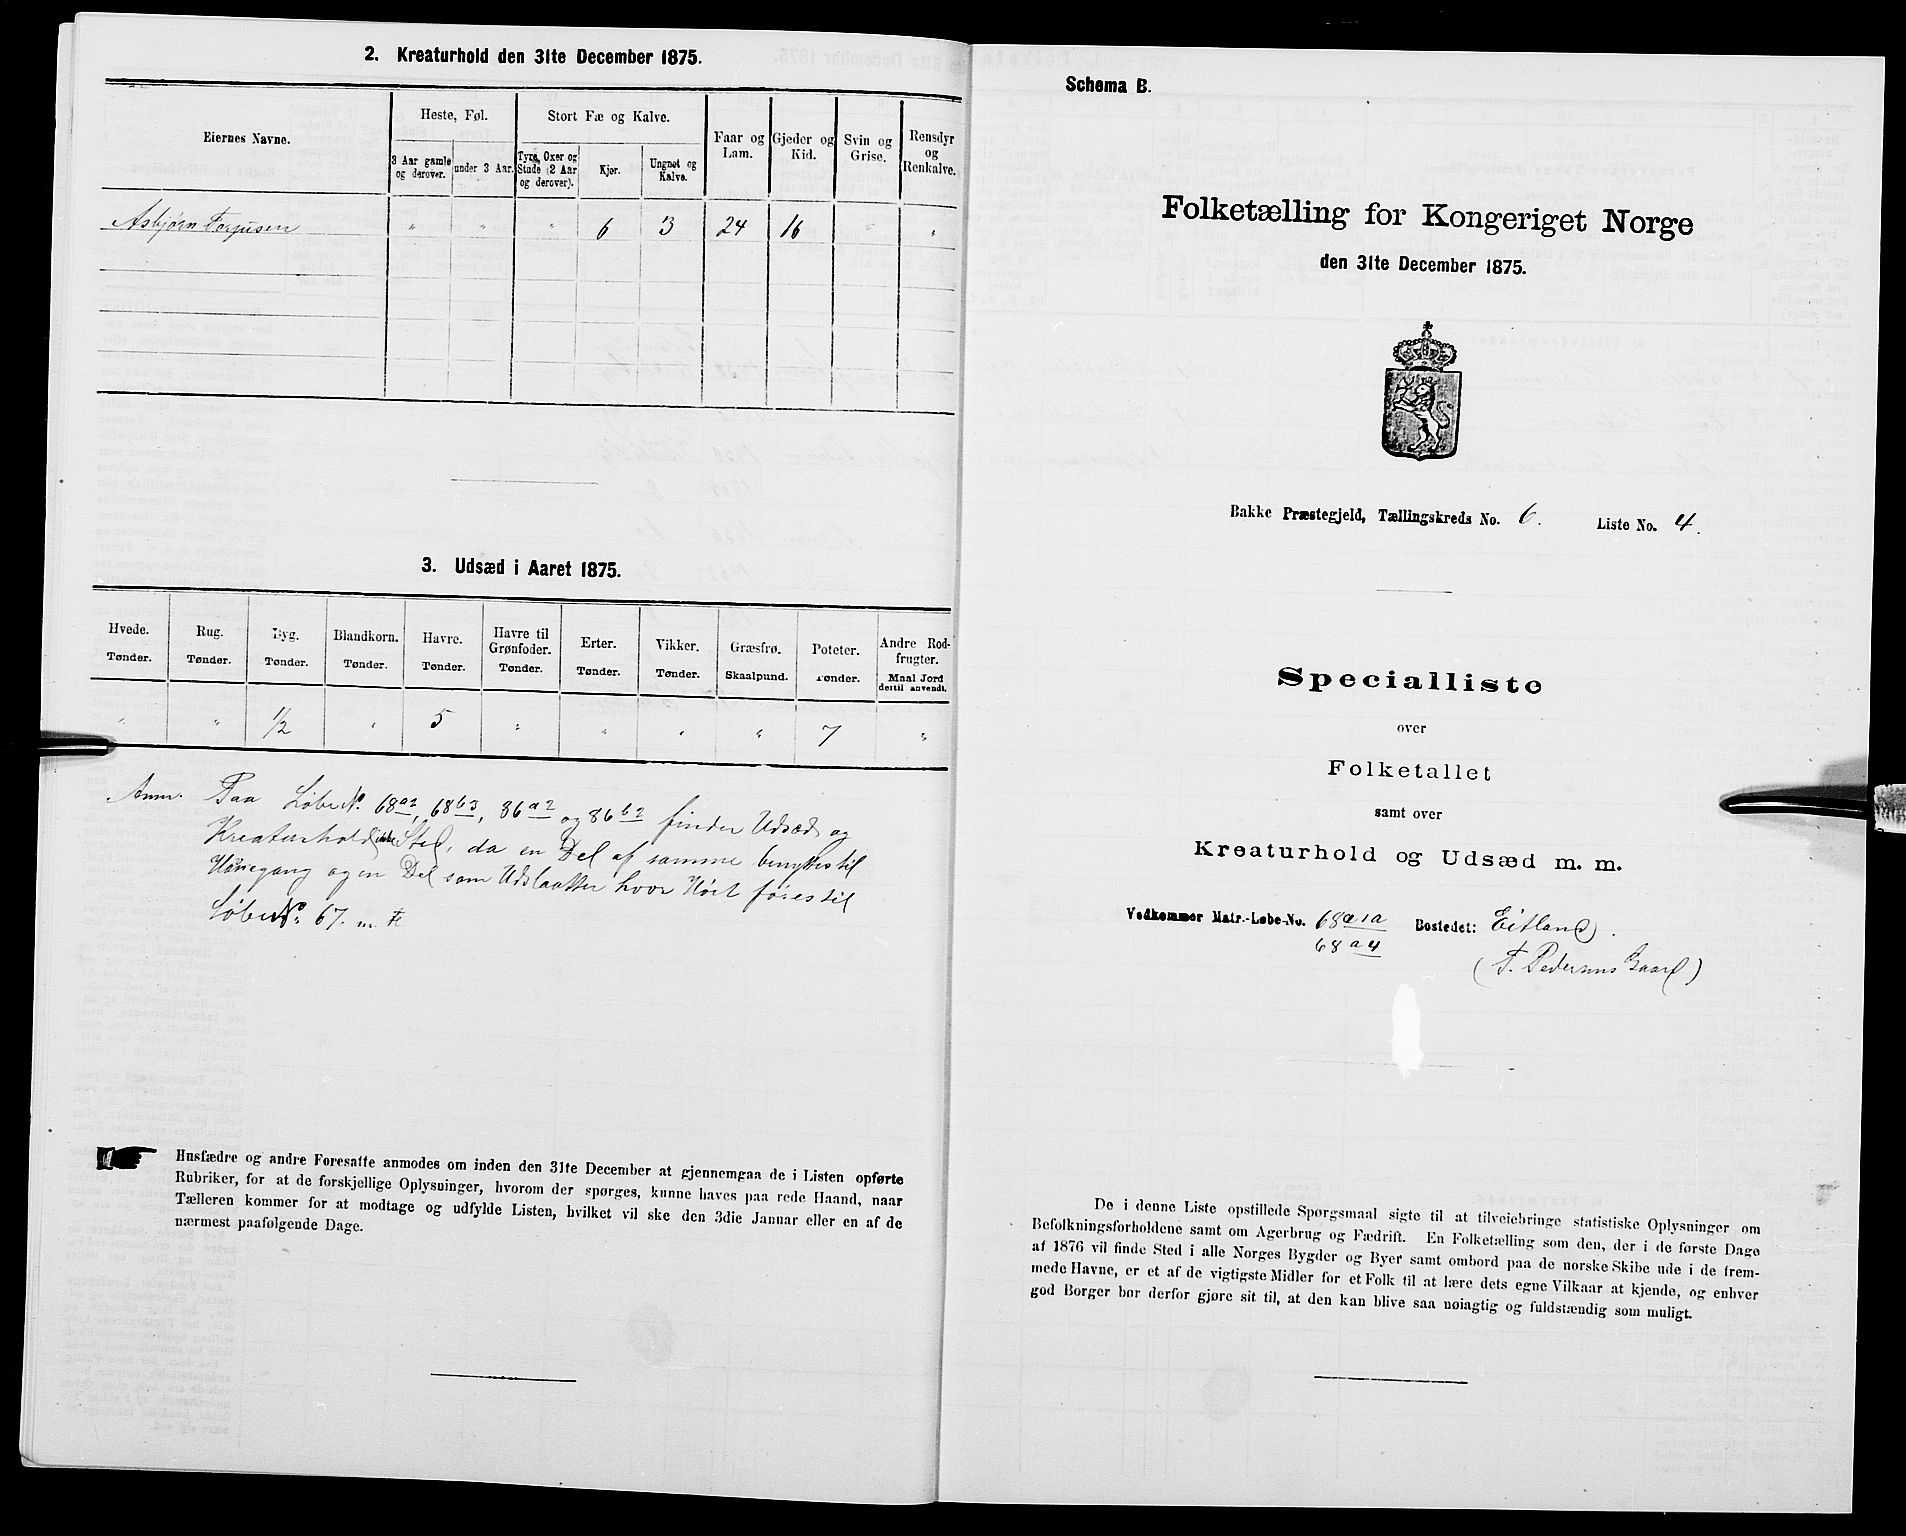 2. Kreaturhold den 31te December 1875.
Eiernes Navne.
Heste, Føl.
Stort Fæ og Kalve.
Faar og Lam.
Gjeder og Kid.
Svin og Grise.
Rensdyr og Renkalve.
3 Aar gamle og derover.
under 3 Aar.
Tyre, Oxer og Stude (2 Aar og derover).
Kjør.
Ungnøt og Kalve.
Asbjørn Terjusen " " " 6 3 24 16 " "
3. Udsæd i Aaret 1875.
Hvede. Rug. Byg. Blandkorn. Havre. Havre til Grønfoder. Erter. Vikker. Græsfrø. Poteter. Andre Rodfrugter.
Tønder. Tønder. Tønder. Tønder. Tønder. Tønder. Tønder. Tønder. Skaalpund. Tønder. Maal Jord dertil anvendt.
" " 1/2 " 5 " " " " 7 "
Anm. Paa Løbe No. 68a2, 68b3, 86a2 og 86b2 finder Udsæd og
Kreaturhold ikke Sted, da en Del af samme benyttes til
Havnegang og en Del som Udslaatter hvor Høet føres til
Løbe No. 67. m. fl.
Husfædre og andre Foresatte anmodes om inden den 31te December at gjennemgaa de i Listen opførte
Rubriker, for at de forskjellige Oplysninger, hvorom der spørges, kunne haves paa rede Haand, naar
Tælleren kommer for at modtage og udfylde Listen, hvilket vil ske den 3die Januar eller en af de
nærmest paafølgende Dage.
Schema B.
Folketælling for Kongeriget Norge
den 31te December 1875.
Bakke Præstegjeld, Tællingskreds No. 6. Liste No. 4.
Specialliste
over
Folketallet
samt over
Kreaturhold og Udsæd m. m.
Vedkommer Matr.-Løbe-No. 68a1a Bostedet: Eitland.
68a4 (T. Pedersens Gaard)
De i denne Liste opstillede Spørgsmaal sigte til at tilveiebringe statistiske Oplysninger om
Befolkningsforholdene samt om Agerbrug og Fædrift. En Folketælling som den, der i de første Dage
af 1876 vil finde Sted i alle Norges Bygder og Byer samt ombord paa de norske Skibe ude i de frem-
mede Havne, er et af de vigtigste Midler for et Folk til at lære dets egne Vilkaar at kjende, og enhver
god Borger bør derfor gjøre sit til, at den kan blive saa nøiagtig og fuldstændig som muligt.